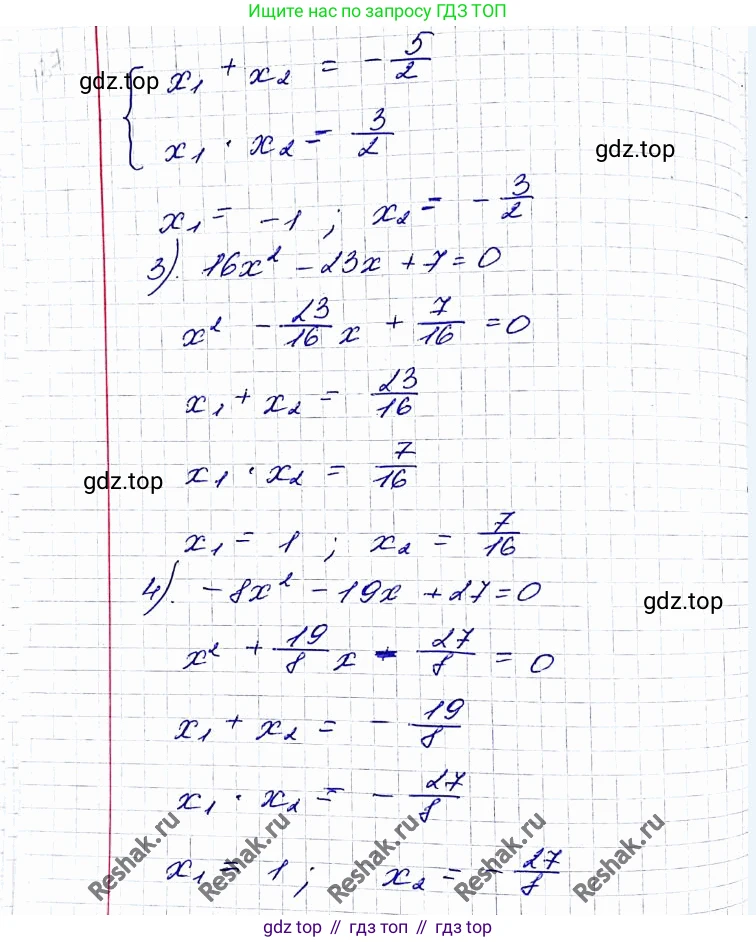 Ищите нас по запросу ГДЗ ТОП
gdz.top
x₁ + x₂ = -5/2
x₁ · x₂ = 3/2
gdz.top
x₁ = -1 ; x₂ = -3/2
3). 16x² - 23x + 7 = 0
x² - 23/16 x + 7/16 = 0
x₁ + x₂ = 23/16
x₁ · x₂ = 7/16
gdz.top
x₁ = 1 ; x₂ = 7/16
4). -8x² - 19x + 27 = 0
gdz.top
x² + 19/8 x - 27/8 = 0
x₁ + x₂ = -19/8
x₁ · x₂ = -27/8
x₁ = 1 ; x₂ = -27/8
Reshak.ru Reshak.ru Reshak.ru Reshak.ru Reshak.ru
gdz top // гдз топ // gdz top